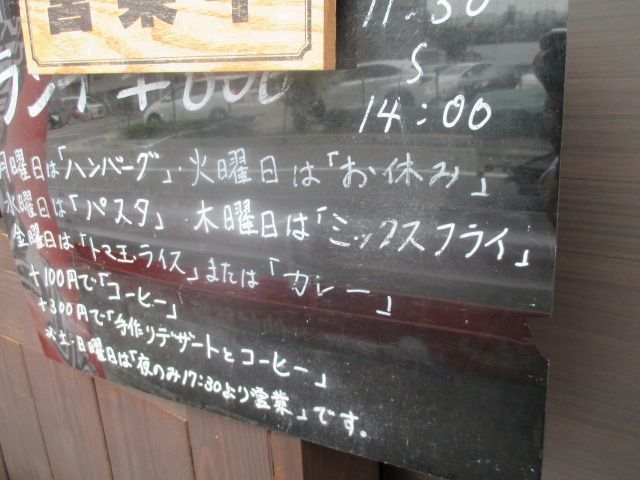 営業中
11:30
S
ランチ
14:00
月曜日は「ハンバーグ」 火曜日は「お休み」
水曜日は「パスタ」 木曜日は「ミックスフライ」
金曜日は「トマ玉ライス」または「カレー」
+100円で「コーヒー」
+300円で「手作りデザートとコーヒー」
※土・日曜日は「夜のみ17:30より営業」です。